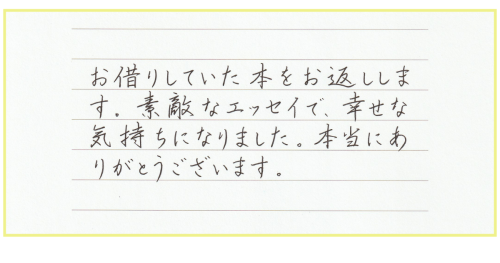 お借りしていた本をお返ししま
す。素敵なエッセイで、幸せな
気持ちになりました。本当にあ
りがとうございます。